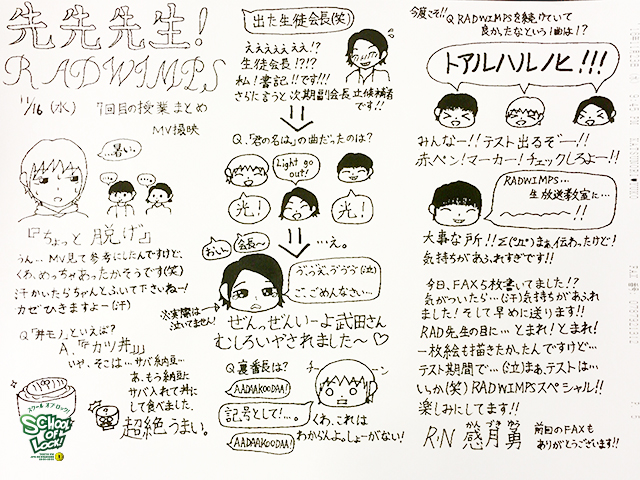 先先先生!
RADWIMPS
11/16(水) 7回目の授業まとめ
MV撮映
…暑い。
『ちょっと脱げ』
うん…MV見て参考にしたんですけど、
くわ、めっちゃあったかそうです(笑)
汗かいたらちゃんとふいて下さいねー!
カゼひきますよー(汗)
Q.「丼モノ」といえば?
A.『カツ丼』
いや、そこは…サバ納豆…
あ、もう納豆に
サバ入れて丼に
して食べました。
超絶うまい。
スクール オブ ロック!
SCHOOL
OF
LOCK!
出た生徒会長(笑)
えええええぇ!?
生徒会長!?!?
私!書記!!です!!!
さらに言うと次期副会長立候補者
です!!
Q.「君の名は」の曲だったのは?
Light go
out!
光!
光!
…え。
おい。
会長〜
ゔっうえ、ゔゔゔ(泣)
ご、ごめんなさい…
※実際は
泣いてません!
ぜんっぜんいーよ武田さん
むしろいやされました〜♡
Q.裏番長は?
チーーーン
AADAAKOODAA!
記号として!…。
AADAAKOODAA!
くわ、これは
わからんよ。しょーがない!
今度こそ!! Q RADWIMPSを続けていて
良かったなという1曲は!?
トアルハルノヒ!!!
みんなー!!テスト出るぞー!!
赤ペン!マーカー!チェックしろよー!!
RADWIMPS…
生放送教室に…
〜〜〜!!
大事な所!!Σ(°Д°)まぁ、伝わったけど!
気持ちがあふれすぎです!!
今日、FAX5枚書いてました!?
気がついたら…(汗)気持ちがあふれ
ました!そして早めに送ります!!
RAD先生の目に…とまれ!とまれ!
一枚絵も描きたかったんですけど…
テスト期間で…(泣)まぁ、テストは…
いっか(笑)RADWIMPSスペシャル!!
楽しみにしてます!!
R.N 感月勇
かん づき ゆう
前回のFAXも
ありがとうございます!!